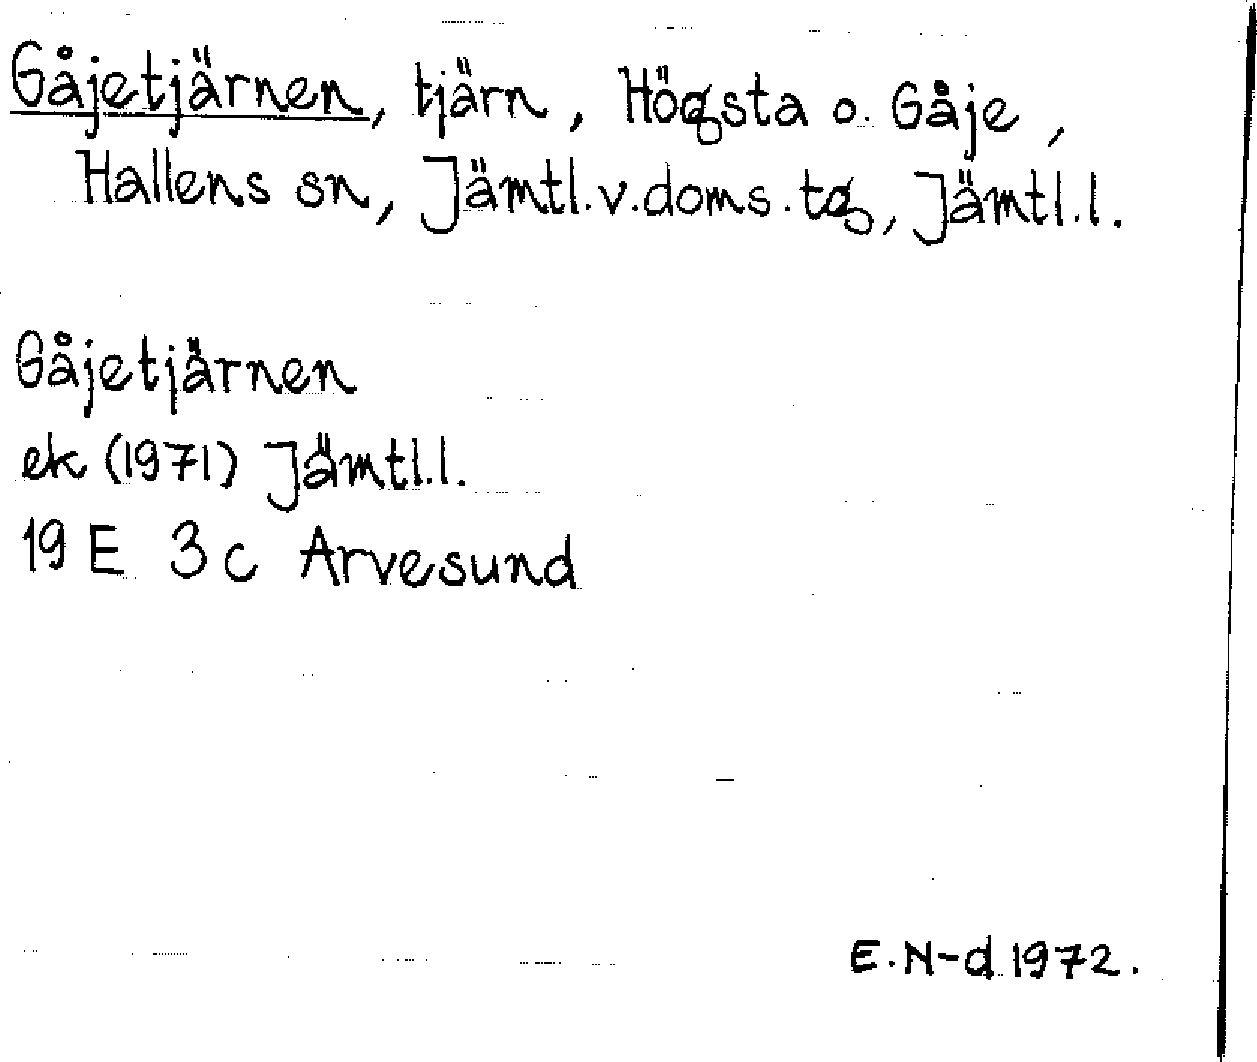 Gåjetjärnen, tjärn, Högsta o. Gåje,
Hallens sn, Jämtl.v.doms.tg, Jämtl.l.
Gåjetjärnen
ek (1971) Jämtl.l.
19 E 3 c Arvesund
E.N-d 1972.